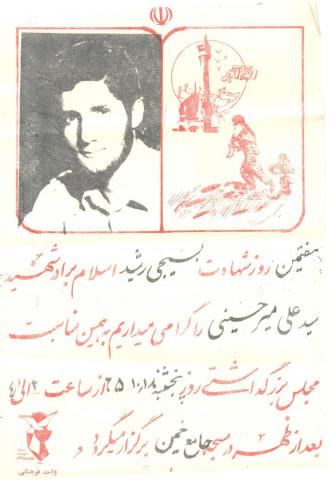 الله اکبر
هفتمین روز شهادت بسیجی رشید اسلام برادر شهید
سید علی میرحسینی را گرامی میداریم بهمین مناسبت
مجلس بزرگداشتی روز پنجشنبه ۶۵٫۱۰٫۱۸ از ساعت ۲ الی ۴
بعد از ظهر در مسجد جامع خمین برگزار میگردد
واحد فرهنگی